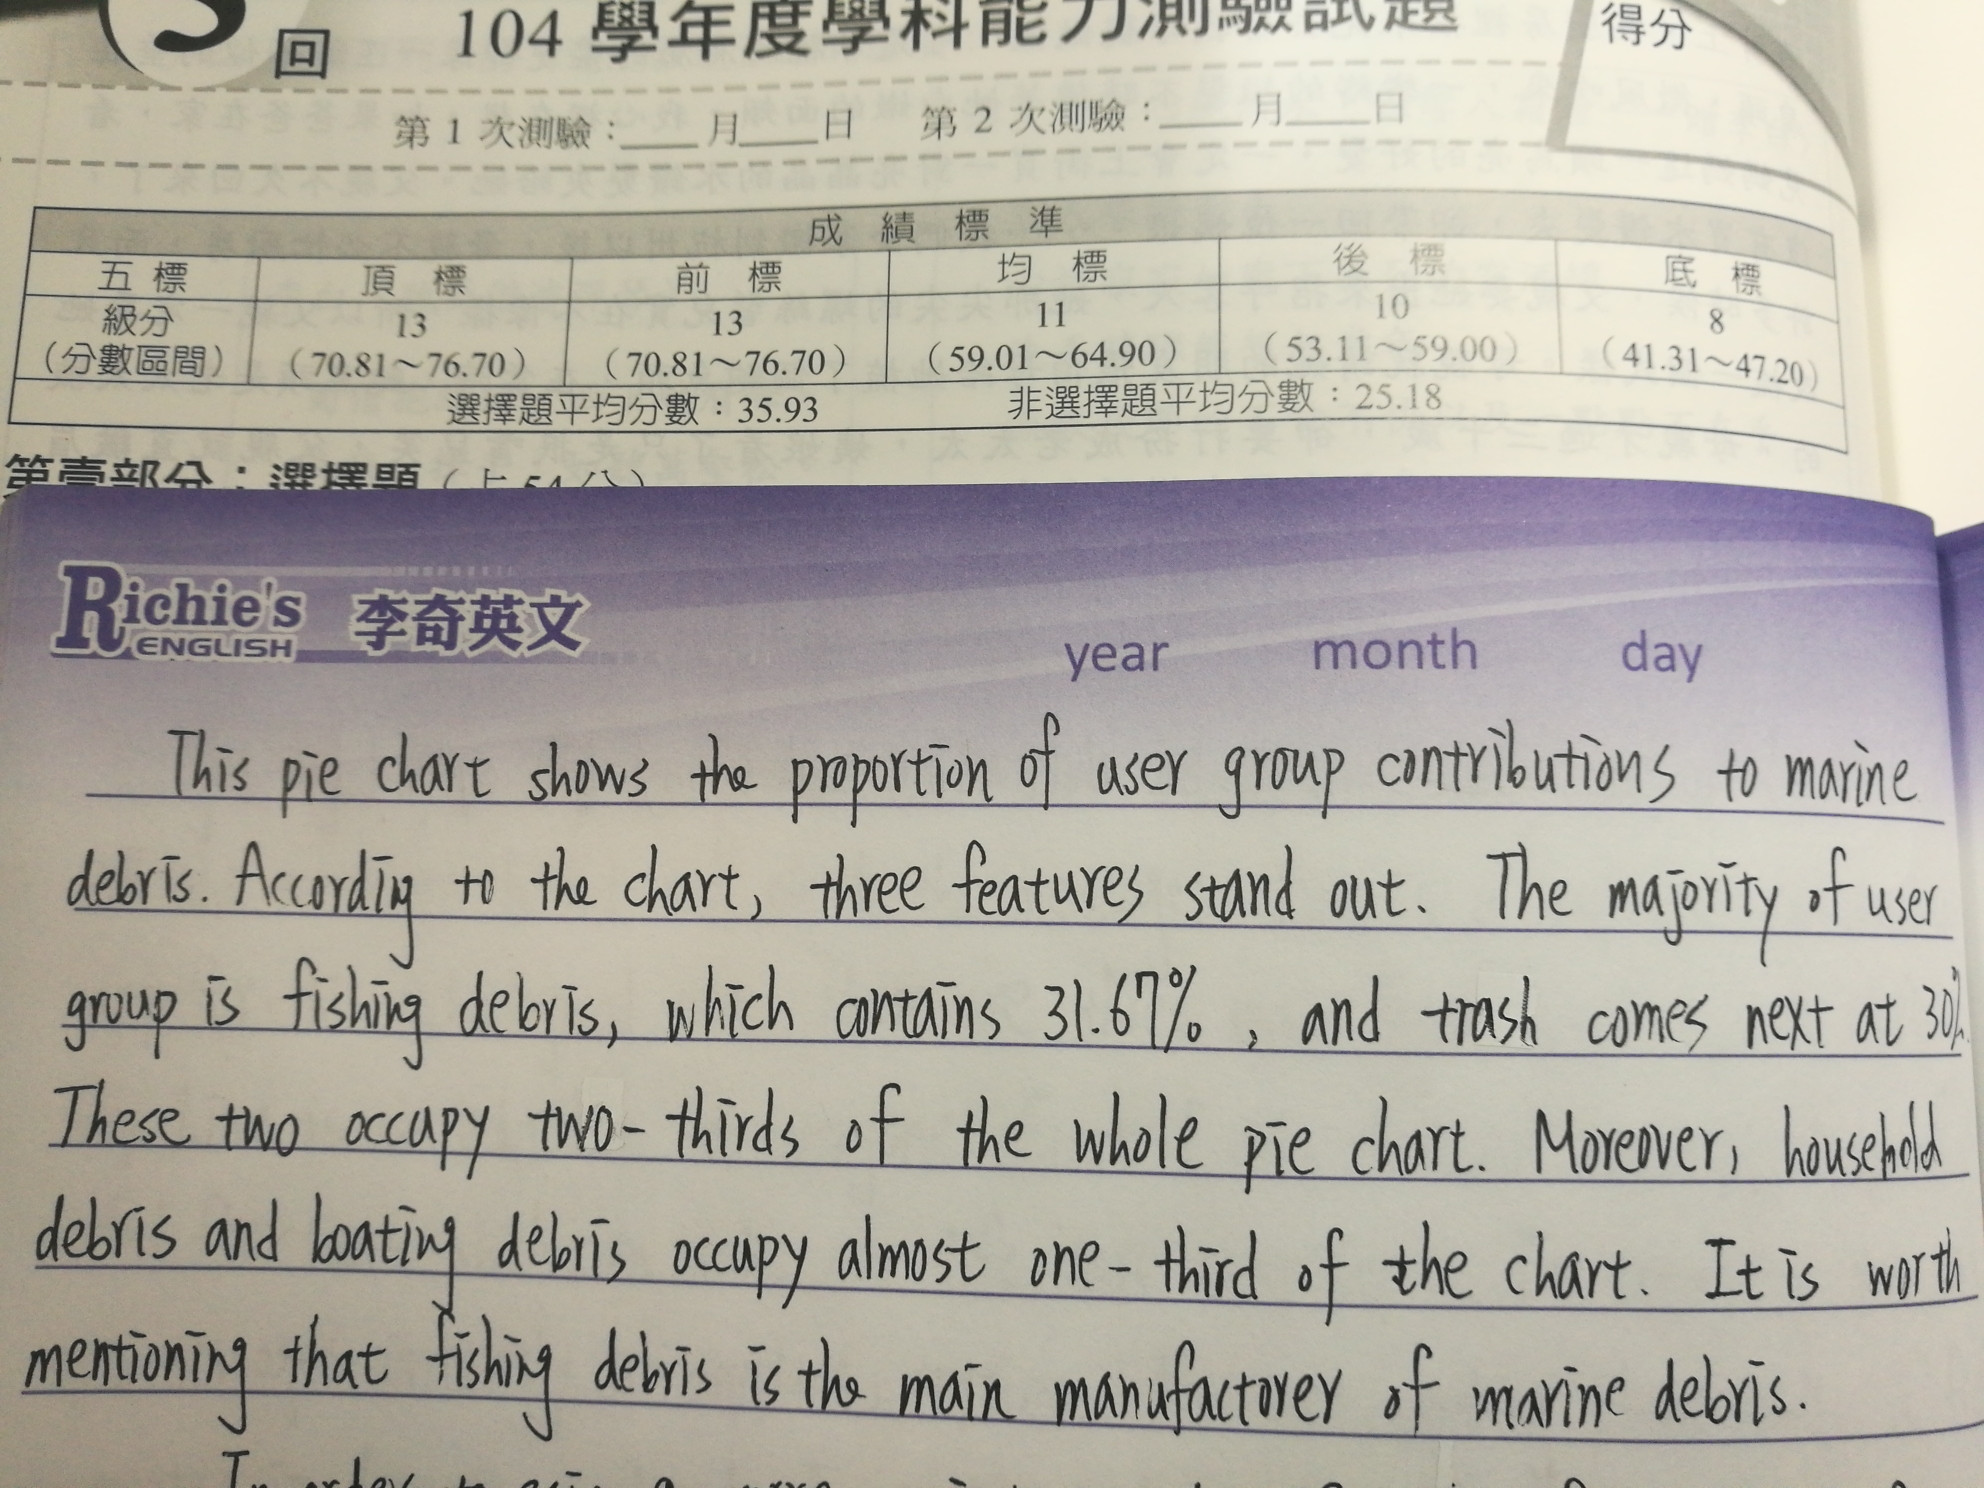 回 104 學年度學科能力測驗試題 得分
第 1 次測驗：____月____日 第 2 次測驗：____月____日
成績標準
五標 頂標 前標 均標 後標 底標
級分 13 13 11 10 8
（分數區間） （70.81～76.70） （70.81～76.70） （59.01～64.90） （53.11～59.00） （41.31～47.20）
選擇題平均分數：35.93 非選擇題平均分數：25.18
第壹部分：選擇題（占 54 分）
Richie's ENGLISH 李奇英文
year month day
This pie chart shows the proportion of user group contributions to marine
debris. According to the chart, three features stand out. The majority of user
group is fishing debris, which contains 31.67%, and trash comes next at 30%.
These two occupy two-thirds of the whole pie chart. Moreover, household
debris and boating debris occupy almost one-third of the chart. It is worth
mentioning that fishing debris is the main manufactorer of marine debris.
In order to